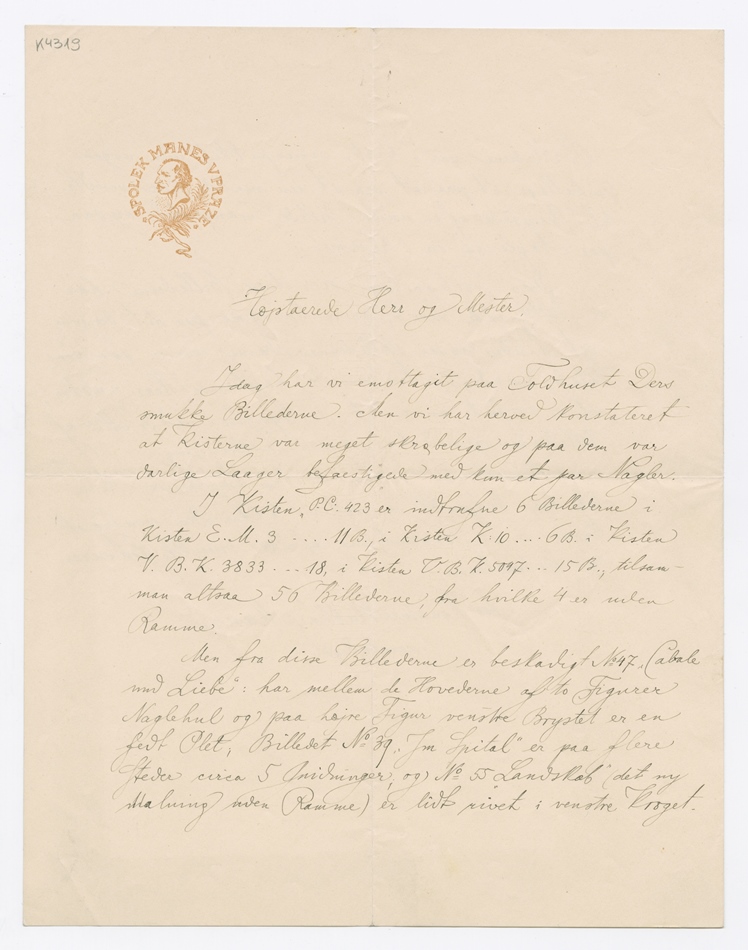 K4319
SPOLEK MANES V PRAZE
Højstaerede Herr og Mester.
Idag har vi emottagit paa Toldhuset Ders
smukke Billederne. Men vi har herved konstateret
at Kisterne var meget skrøbelige og paa dem var
darlige Laager befaestigede med kun et par Nagler.
I Kisten „P.C. 423 er indtrufne 6 Billederne i
Kisten E. M. 3 .... 11 B., i Kisten K. 10 .... 6 B. i Kisten
V. B. K. 3833 ... 18, i Kisten V. B. K. 5047 ... 15 B., tilsam-
man altsaa 56 Billederne, fra hvilke 4 er uden
Ramme.
Men fra disse Billederne er beskadigt No 47 „Cabale
und Liebe": har mellem de Hovederne af to Figurer
Naglehul og paa højre Figur venstre Brystet er en
fedt Plet, Billedet No 39 „Im Spital" er paa flere
Steder circa 5 Snidninger, og No 55 „Landskab" (det ny
Malning uden Ramme) er lidt rivet i venstre Kroget.